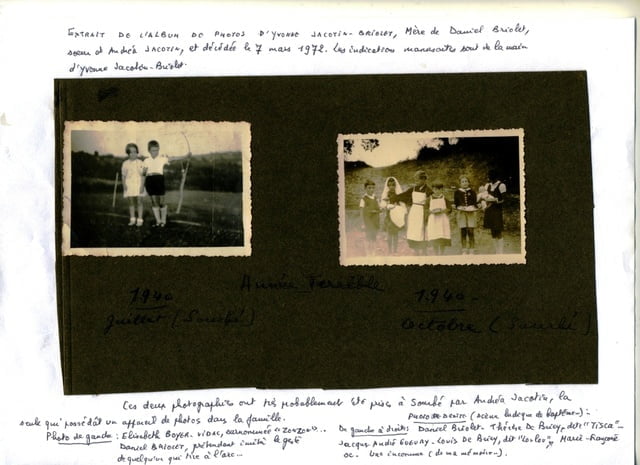 EXTRAIT DE L'ALBUM DE PHOTOS D'YVONNE JACOTIN-BRIOLET, Mère de Daniel Briolet,
soeur d'Andréa JACOTIN, et décédée le 7 mars 1972. Les indications manuscrites sont de la main
d'Yvonne Jacotin-Briolet.
Année Terrible
1940
Juillet (Sombé)
1940-
Octobre (Sombé)
Ces deux photographies ont très probablement été prises à Sombé par Andréa Jacotin, la
seule qui possédât un appareil de photos dans la famille.
Photo de gauche: Elisabeth BOYER-VIDAL, surnommée "ZONZON"..
Daniel BRIOLET, prétendant imiter le geste
de quelqu'un qui tire à l'arc...
PHOTO DE DROITE (scène ludique de baptême-):
De gauche à droite: Daniel Briolet- Thérèse De Bricy, dit "TISCA"-
Jacques André -Louis De Bricy, dit - Marie-Françoise
- Une inconnue (de ma mémoire-).